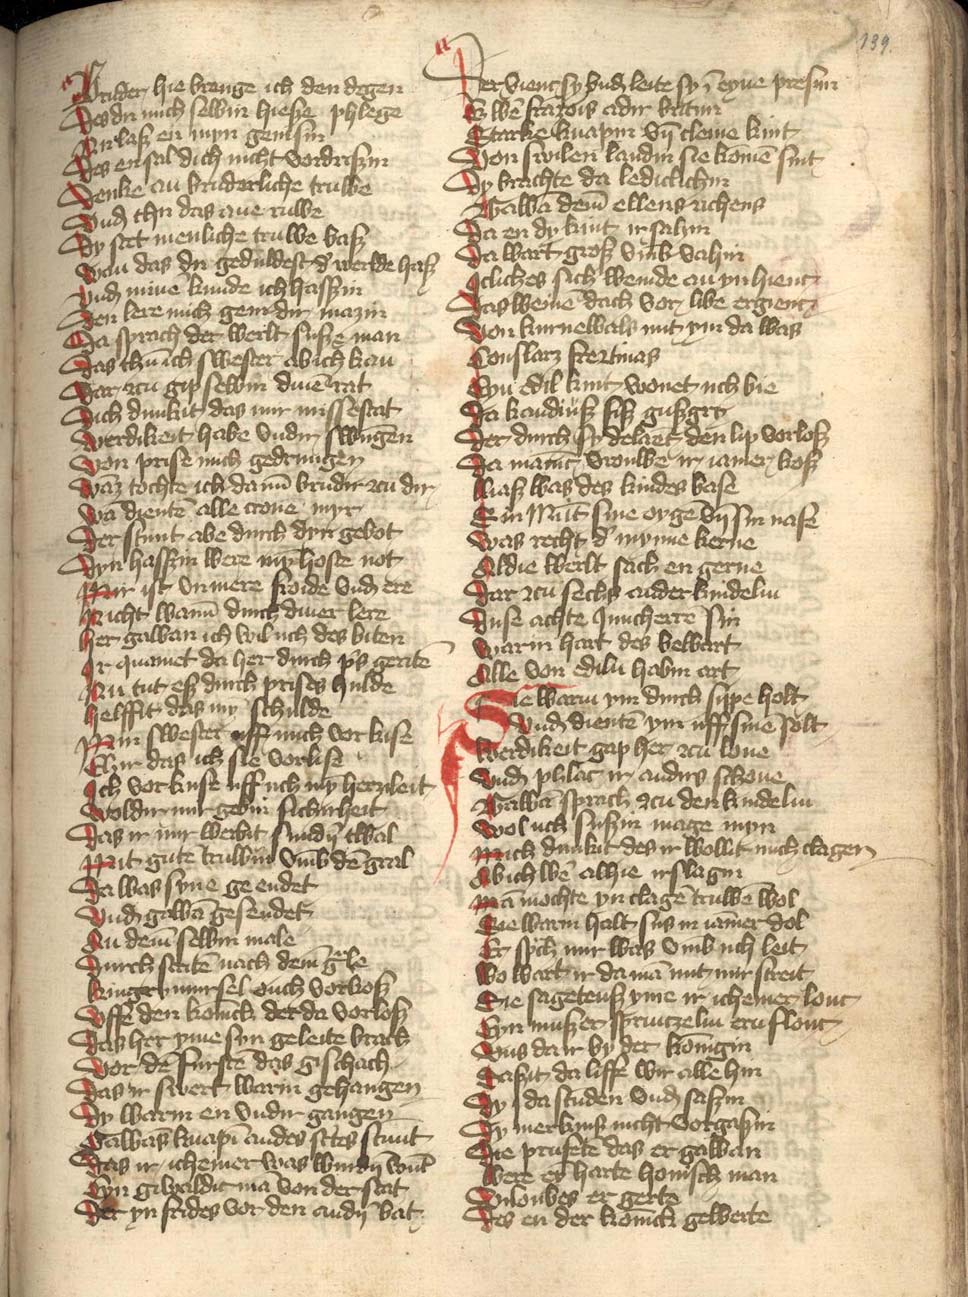 139
Bruder hie brenge ich den degen
Des du mich selbin hiesze phlege
Nu lasz en myn genisin
Des en sal dich nicht vordriszin
Denke an bruderliche truwe
Vnd thu das ane ruwe
Dy stet menliche truwe basz
Wan das du geduldest d' werlde hasz
Vnd mine kunde ich hassin
Den lere mich gein dir mazin
Da sprach der werlt susze man
Das thu ich swester ab ich kan
Dar zcu gip selbin dine rat
Dich dunkit das mir missetat
Werdikeit habe vndir swungen
Von prise mich gedrungen
Waz tochte ich danne brudir zcu dir
Wā dientē alle crone myr
Der stunt abe durch dyn gebot
Dyn hassin were myn hoste not
Mir ist vnmere froide vnd ere
Nicht wann durch diner lere
Her gawan ich wil uch des biten
Ir quamet da her durch p's geritē
Nu tut esz durch prises hulde
Helffit das my' schulde
Min swester uff mich vorkise
E ir das ich sie vorlise
Ich vorkuse uff uch my herzleit
Woldir mir gebin sicherheit
Das ir mir werbit sundir twal
Mit gute truwin vmb dē gral
Da was syne ge endet
Vnd gawā gesendet
An dem selbin male
Durch stritē nach dem gele
kingrymursel ouch vorkosz
Vffē den konick der da vorlosz
Das her yme syn geleite brach
Vor dē furstē das gischach
Das ir swert warin gehangen
Dy warin en vndir gangen
Gawās knapī andes strites stunt
Das ir icheiner was wundē wūt
Eyn giwaldic mā von der stat
Der yn frides vor den andirn bat
Der vienc sy vnd leite sy ī eyne presun
Ez wē frazois adir britun
Starke knapin vn cleine kint
Von swilen landin sie komē sint
Dy brachte da lediclichen
Gawā dem ellens richens
Da en dy kint irsahin
Da wart grosz vmb vahin
Icliches sich weinde an yn hienc
Das weine dach vor libe ergienc
Von kurnewals mit ym da was
Conslarz fiertinas
Eyn edil kint wonet uch bie
Da kandiusz fisz guszgri
Der durch sy delaēt den lip vorlosz
Da manic vrouwe ir iamer kosz
Liasz was des kindes base
Ein munt sine ougē vn sin nase
Was recht d' mynne kerne
Aldie werlt sach en gerne
Dar zcu sechs ander kindelin
Duse achte iuncherrē sin
Warin hart des bewart
Alle von edilir habin art
Sie warin ym durch sippe holt
Vnd diente ym uff sine solt
Werdikeit gap her zcu lone
Vnd phlac ir andirs schone
Gawā sprach zcu den kindelin
Wol uch suszin mage myn
Mich dunkit des ir wollit mich clagen
Ab ich wē alhie irslagin
Mā mochte yn clagē truwē wol
Sie warin halt sus in iāmer dol
Er sp'ch mir was vmb uch leit
Wo wart ir da mā mit mir streit
Sie sagetensz yme ir icheiner louc
Eyn muszer sprintzelin eru flouc
Vns da ir by der konigin
Saszit da liffē wir alle hin
Dy da studen vnd saszin
Dy merkins nicht vorgaszin
Sie pruftē das er gawan
Were ey harte houisch man
Vrloubes er gerte
Des en der konick gewerte